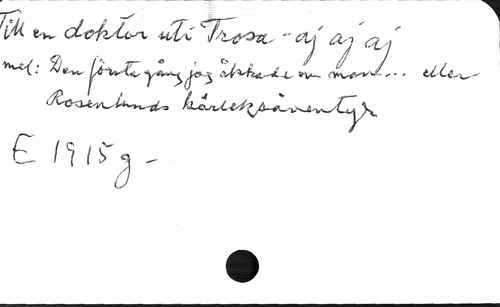 Till en doktor uti Trosa - aj aj aj
mel: Den första gång jag älskade en man... eller
Rosenlunds kärleksäventyr
E 1915 g -